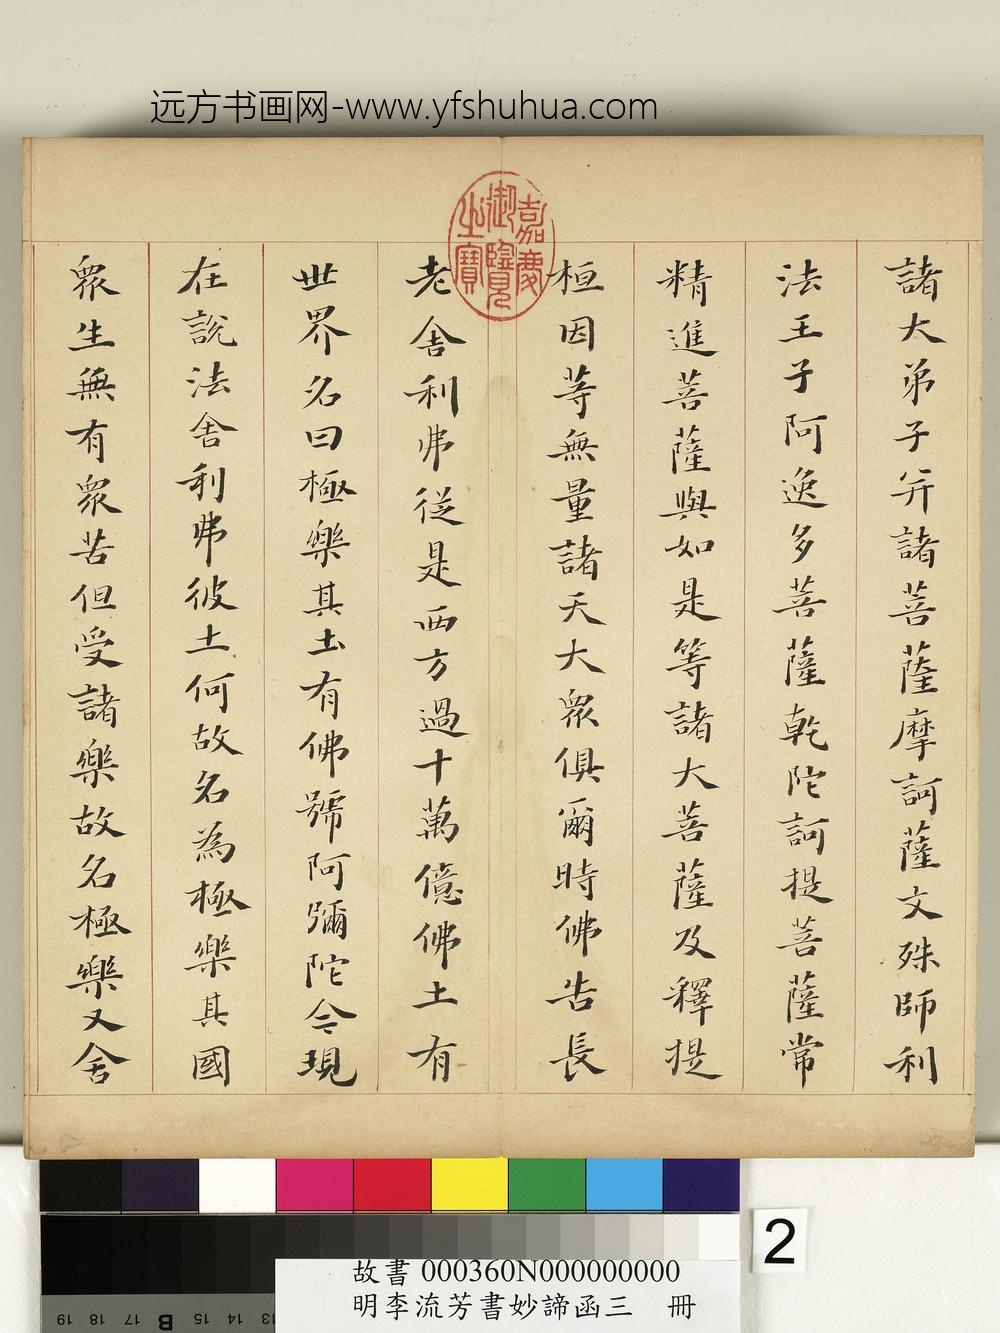 远方书画网-www.yfshuhua.com
嘉慶御覽之寶
諸大弟子并諸菩薩摩訶薩文殊師利
法王子阿逸多菩薩乾陀訶提菩薩常
精進菩薩與如是等諸大菩薩及釋提
桓因等無量諸天大衆俱爾時佛告長
老舍利弗從是西方過十萬億佛土有
世界名曰極樂其土有佛號阿彌陀今現
在說法舍利弗彼土何故名為極樂其國
衆生無有衆苦但受諸樂故名極樂又舍
2
故書 000360N000000000
明李流芳書妙諦函三 冊
19 18 17 B 15 14 13